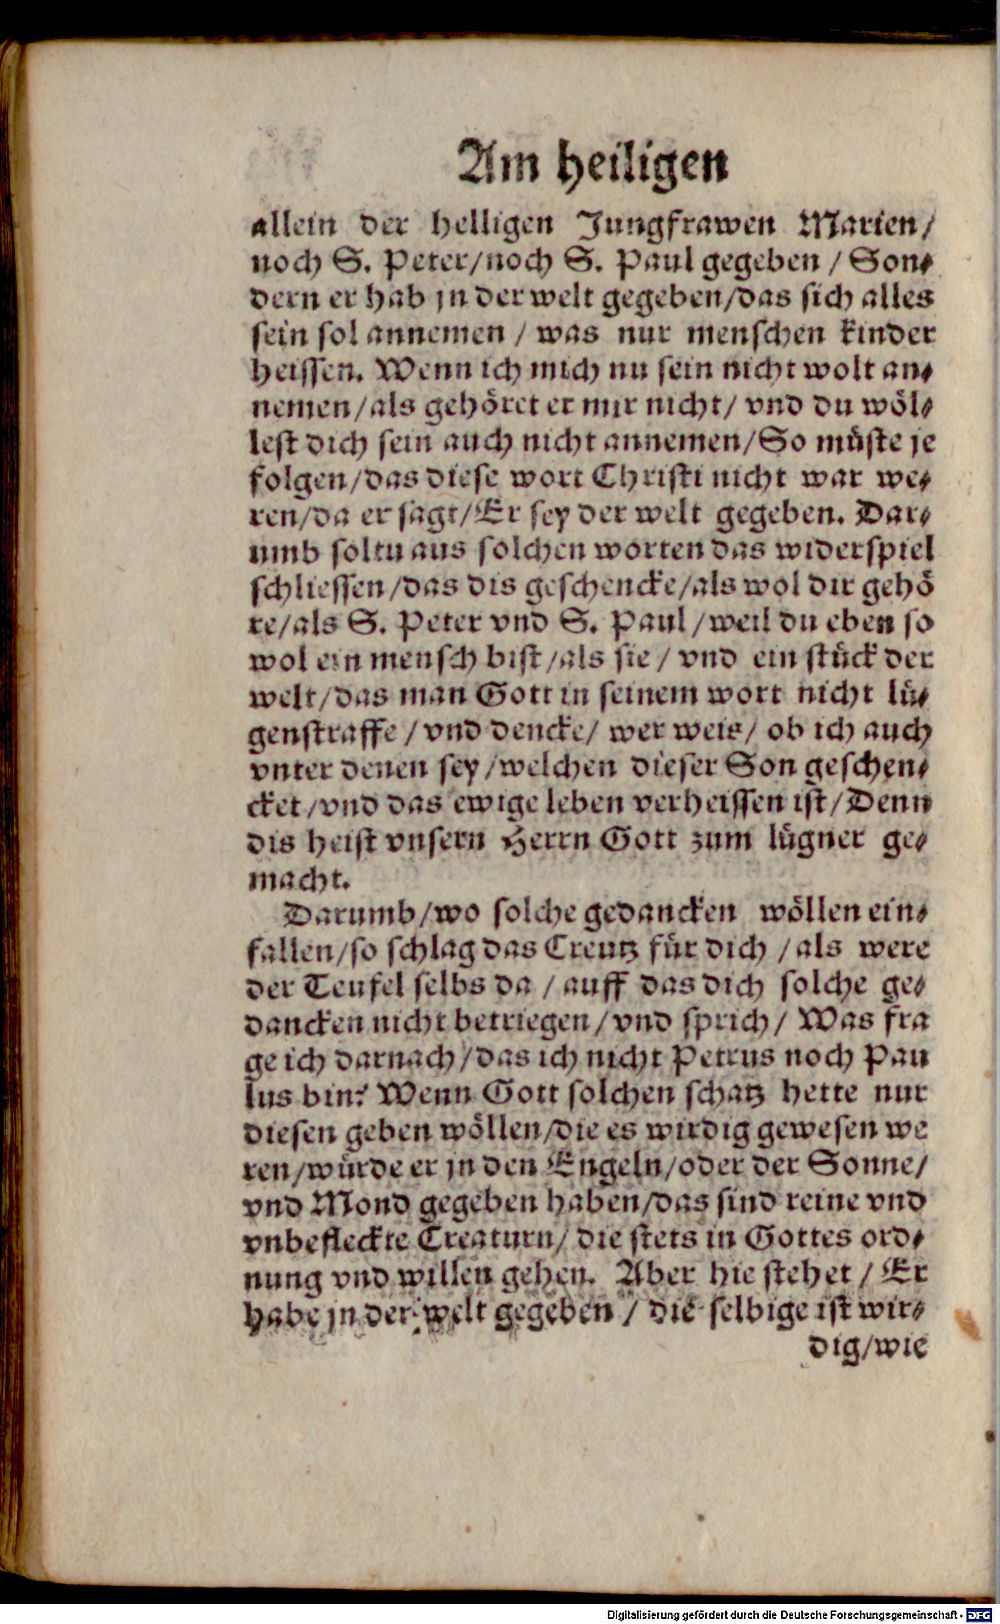 Am heiligen
allein der helligen Jungfrawen Marien/
noch S. Peter/noch S. Paul gegeben / Son⸗
dern er hab jn der welt gegeben/das sich alles
sein sol annemen / was nur menschen kinder
heissen. Wenn ich mich nu sein nicht wolt an⸗
nemen/als gehöret er mir nicht/ vnd du wöl⸗
lest dich sein auch nicht annemen/So müste je
folgen/das diese wort Christi nicht war we⸗
ren/da er sagt/Er sey der welt gegeben. Dar⸗
umb soltu aus solchen worten das widerspiel
schliessen/das dis geschencke/als wol dir gehö
re/als S. Peter vnd S. Paul/weil du eben so
wol ein mensch bist/als sie / vnd ein stück der
welt/das man Gott in seinem wort nicht lü⸗
genstraffe / vnd dencke/ wer weis/ ob ich auch
vnter denen sey/welchen dieser Son geschen⸗
cket/vnd das ewige leben verheissen ist/Denn
dis heist vnsern Herrn Gott zum lügner ge⸗
macht.
Darumb/wo solche gedancken wöllen ein⸗
fallen/so schlag das Creutz für dich /als were
der Teufel selbs da / auff das dich solche ge⸗
dancken nicht betriegen/vnd sprich/ Was fra
ge ich darnach/das ich nicht Petrus noch Pau
lus bin? Wenn Gott solchen schatz hette nur
diesen geben wöllen/die es wirdig gewesen we
ren/würde er jn den Engeln/oder der Sonne/
vnd Mond gegeben haben/das sind reine vnd
vnbefleckte Creaturn/ die stets in Gottes ord⸗
nung vnd willen gehen. Aber hie stehet / Er
habe jn der welt gegeben / die selbige ist wir⸗
dig/wie
Digitalisierung gefördert durch die Deutsche Forschungsgemeinschaft - DFG